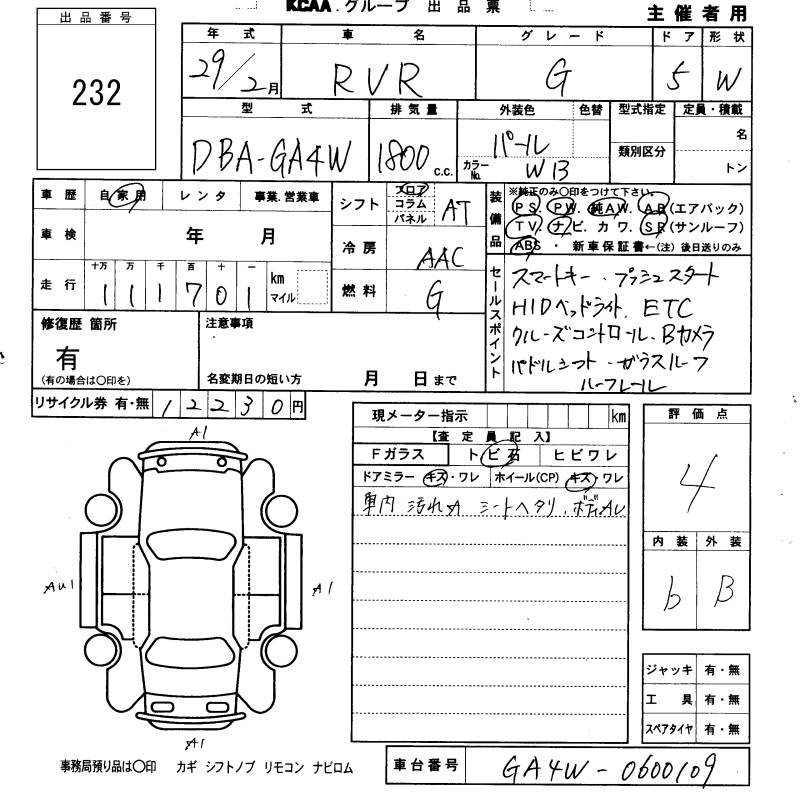 KCAA.グループ 出品票
主催者用
出品番号
232
年式 車名 グレード ドア 形状
29/2月 RVR G 5 W
型式 排気量 外装色 色替 型式指定 定員・積載
DBA-GA4W 1800c.c. パール 類別区分 名
カラーNo. WB トン
車歴 自家用 レンタ 事業.営業車
車検 年 月
走行 十万 万 千 百 十 一 km マイル
111701
シフト フロア コラム パネル AT
冷房 AAC
燃料 G
装備品 ※純正のみ〇印をつけて下さい。
PS. PW. 純AW. AB(エアバック)
TV. ナビ. カワ. SR(サンルーフ)
ABS・新車保証書←(注)後日送りのみ
セールスポイント
スマートキー・プッシュスタート
HIDヘッドライト. ETC
クルーズコントロール・Bカメラ
パドルシフト・ガラスルーフ
ルーフレール
修復歴 箇所
有
(有の場合は〇印を)
注意事項
名変期日の短い方 月 日まで
リサイクル券 有・無 12230円
現メーター指示 km
【査定員記入】
Fガラス トビ石 ヒビワレ
ドアミラー キズ・ワレ ホイール(CP) キズ・ワレ
車内 汚れA シートヘタリ. ボディAU
評価点
4
内装 外装
b B
A1
AU1
A1
A1
ジャッキ 有・無
工具 有・無
スペアタイヤ 有・無
事務局預り品は〇印 カギ シフトノブ リモコン ナビロム
車台番号 GA4W-0600109